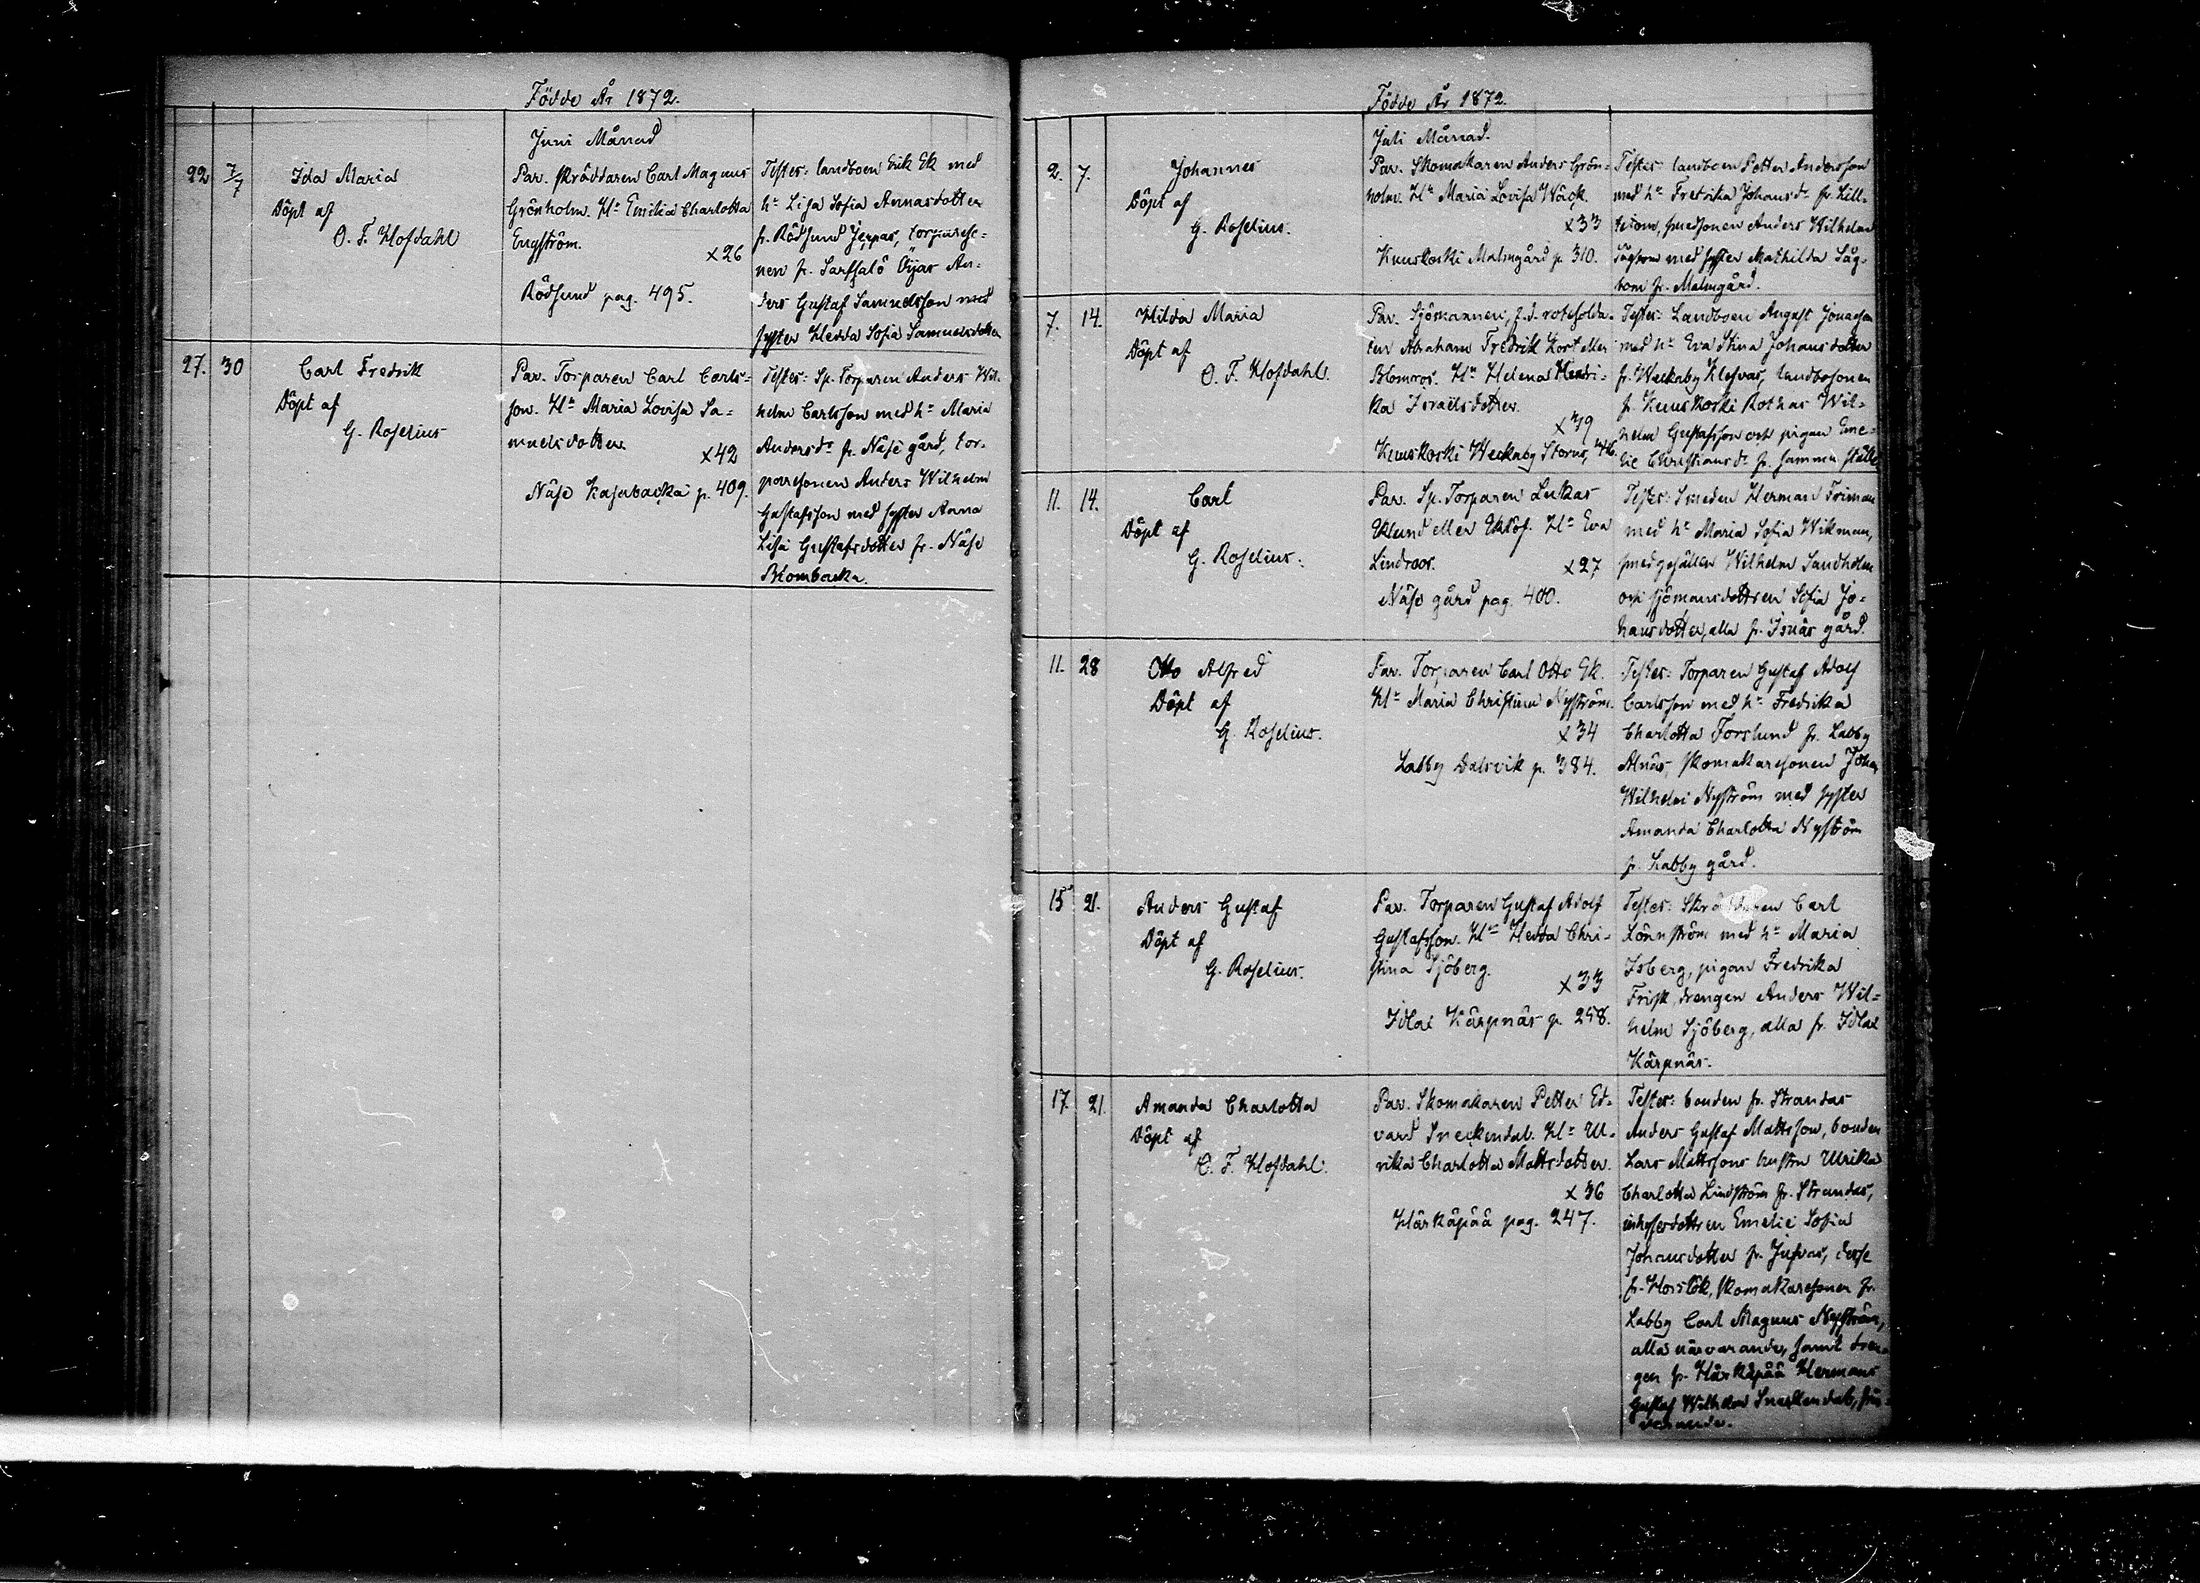 Födde År 1872.
Juni Månad
22 7/7 Ida Maria
Döpt af
O. F. Hofdahl
Par. skräddaren Carl Magnus
Grönholm. Hu Emilia Charlotta
Engström.
x26
Rödsund pag. 495.
Testes: landboen Erik Ek med
hu Lisa Sofia Annasdotter
fr. Rödsund Jeppas, torpareso=
nen fr. Sarfsalö Öijar An=
ders Gustaf Samuelsson med
syster Hedda Sofia Samuelsdotter
27. 30 Carl Fredrik
Döpt af
G. Roselius
Par. Torparen Carl Carls=
son. Hu Maria Lovisa Sa=
muelsdotter.
x42
Näse Kasabacka p. 409.
Testes: Sp. Torparen Anders Wil=
helm Carlsson med hu Maria
Andersdr fr. Näse gård, tor=
paresonen Anders Wilhelm
Gustafsson med syster Anna
Lisa Gustafsdotter fr. Näse
Blombacka.
Födde År 1872.
Juli Månad.
2. 7. Johannes
Döpt af
G. Roselius.
Par. Skomakaren Anders Grön=
holm. Hu Maria Lovisa Wäck.
x33
Kuuskoski Malmgård p. 310.
Testes: landboen Petter Andersson
med hu Fredrika Johansdr fr. Lill=
, smedsonen Anders Wilhelm
Sågbom med syster Mathilda Såg=
bom fr. Malmgård.
7. 14. Hilda Maria
Döpt af
O. F. Hofdahl.
Par. Sjömannen, f. d. rotesolda=
ten Abraham Fredrik Kort eller
Blomros. Hu Helena Hendri=
ka Israelsdotter.
x39
Kuuskoski Weckaby Storus,
Testes: Landboen August Jonasson
med hu Eva Stina Johansdotter
fr. Weckaby Klefvas, landbosonen
fr. Kuuskoski Rothas Wil=
helm Gustafsson och pigan Eme=
lie Christiansdr fr. samma ställe
11. 14. Carl
Döpt af
G. Roselius.
Par. Sp. Torparen Lukas
Eklund eller Eklöf. Hu Eva
Lindroos.
x27
Näse gård pag. 400.
Testes: Smeden Herman Friman
med hu Maria Sofia Wikman,
smedgesällen Wilhelm Sandholm
och sjömansdottren Sofia Jo=
hansdotter, alla fr. Isnäs gård.
11. 28 Otto Alfred
Döpt af
G. Roselius.
Par. Torparen Carl Otto Ek.
Hu Maria Christina Nyström.
x34
Labby Dalsvik p. 384.
Testes: Torparen Gustaf Adolf
Carlsson med hu Fredrika
Charlotta Forslund fr. Labby
Alnäs, skomakaresonen Johan
Wilhelm Nyström med syster
Amanda Charlotta Nyström
fr. Labby gård.
15 21. Anders Gustaf
Döpt af
G. Roselius.
Par. Torparen Gustaf Adolf
Gustafsson. Hu Hedda Chri=
stina Sjöberg.
x33
Idlax Kärpnäs p. 258.
Testes: Skräddaren Carl
Lönnström med hu Maria
Isberg, pigan Fredrika
Frisk, drengen Anders Wil=
helm Sjöberg, alla fr. Idlax
Kärpnäs.
17. 21. Amanda Charlotta
Döpt af
O. F. Hofdahl.
Par. Skomakaren Petter Ed=
vard Sneckendal. Hu Ul=
rika Charlotta Mattsdotter.
x36
Härkäpää pag. 247.
Testes: bonden fr. Strandas
Anders Gustaf Mattsson, bonden
Lars Mattssons hustru Ulrika
Charlotta Lindström fr. Strandas,
inhysesdottren Emelie Sofia
Johansdotter fr. Jufvas, desse
fr. Horslök, skomakaresonen fr.
Labby Carl Magnus Nyström,
alla närvarande, samt dren=
gen fr. Härkäpää Hermans
Gustaf Wilhelm Sneckendal, från=
varande.